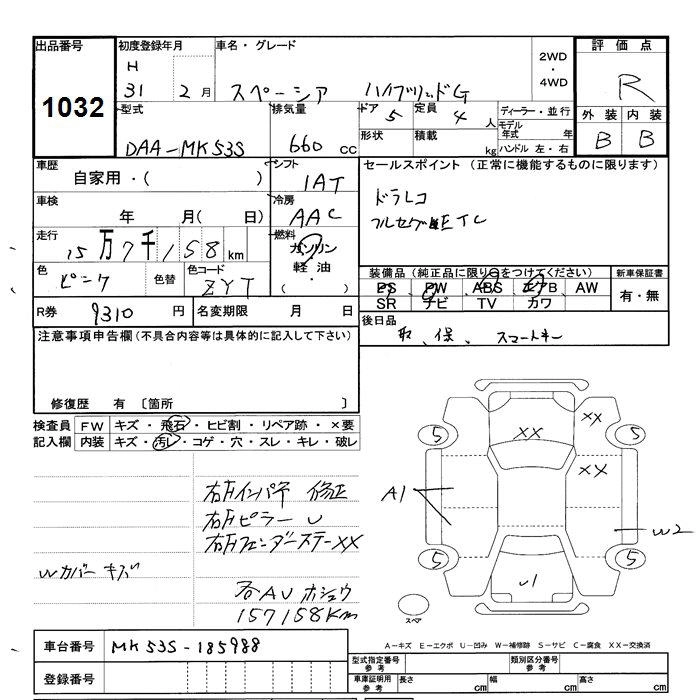 出品番号 初度登録年月 車名・グレード 2WD・4WD 評価点
1032 H 31 2月 スペーシア ハイブリッドG R
型式 排気量 ドア 定員 ディーラー・並行 外装 内装
DAA-MK53S 660cc 5 4人 モデル年式 年 B B
形状 積載 kg ハンドル 左・右
車歴 シフト セールスポイント(正常に機能するものに限ります)
自家用・( ) IAT ドラレコ
車検 冷房 フルセグ ETC
年 月( 日) AAC
走行 燃料
15万7千158km ガソリン
軽油・( )
色 色替 色コード 装備品(純正品に限り○をつけてください) 新車保証書
ピンク ZYT PS PW ABS エアB AW 有・無
SR ナビ TV カワ
R券 9310円 名変期限 月 日 後日品
取、保、スマートキー
注意事項申告欄(不具合内容等は具体的に記入して下さい)
修復歴 有 〔箇所 〕
検査員 FW キズ・飛石・ヒビ割・リペア跡・×要
記入欄 内装 キズ・汚レ・コゲ・穴・スレ・キレ・破レ
右Fインパネ 修正
右Fピラー U
右Fフェンダーステー XX
Wカバー キズ
各AU ホショウ
157158Km
XX
XX
XX
5 5
A1
W2
5 5
U1
スペア
A-キズ E-エクボ U-凹み W-補修跡 S-サビ C-腐食 XX-交換済
車台番号 MK53S-185988
型式指定番号 参考 類別区分番号 参考
登録番号 車庫証明用 参考 長さ cm 幅 cm 高さ cm